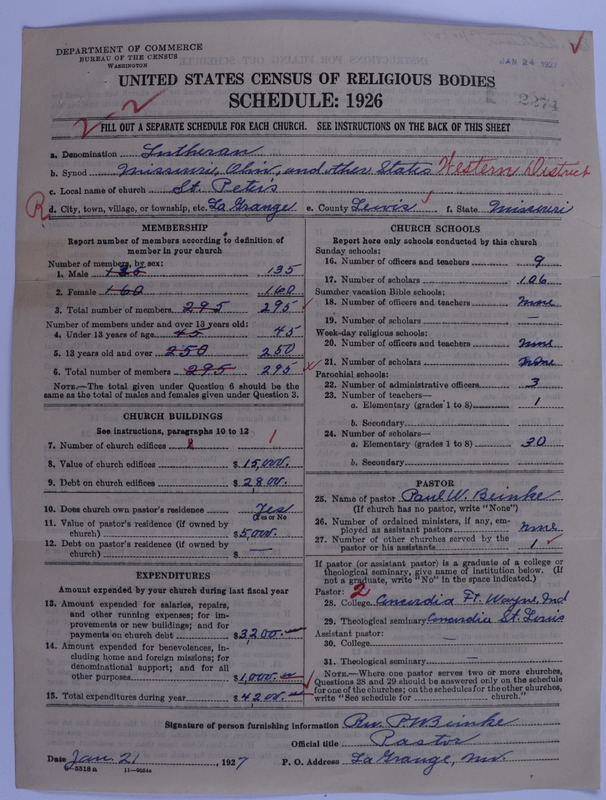 DEPARTMENT OF COMMERCE
BUREAU OF THE CENSUS
WASHINGTON
JAN 24 1927
UNITED STATES CENSUS OF RELIGIOUS BODIES
SCHEDULE: 1926
2274
FILL OUT A SEPARATE SCHEDULE FOR EACH CHURCH. SEE INSTRUCTIONS ON THE BACK OF THIS SHEET
a. Denomination Lutheran
b. Synod Missouri, Ohio, and other States Western District
c. Local name of church St. Peter's
R d. City, town, village, or township, etc. La Grange e. County Lewis f. State Missouri
MEMBERSHIP
Report number of members according to definition of
member in your church
Number of members, by sex:
1. Male 135 135
2. Female 160 160
3. Total number of members 295 295
Number of members under and over 13 years old:
4. Under 13 years of age 45 45
5. 13 years old and over 250 250
6. Total number of members 295 295
NOTE.—The total given under Question 6 should be the
same as the total of males and females given under Question 3.
CHURCH BUILDINGS
See instructions, paragraphs 10 to 12
7. Number of church edifices 1
8. Value of church edifices $15,000.
9. Debt on church edifices $2800.
10. Does church own pastor's residence Yes
(Yes or No
11. Value of pastor's residence (if owned by
church) $5,000.
12. Debt on pastor's residence (if owned by
church) $ —
EXPENDITURES
Amount expended by your church during last fiscal year
13. Amount expended for salaries, repairs,
and other running expenses; for im-
provements or new buildings; and for
payments on church debt $3200.—
14. Amount expended for benevolences, in-
cluding home and foreign missions; for
denominational support; and for all
other purposes $1,000.—
15. Total expenditures during year $4200.—
CHURCH SCHOOLS
Report here only schools conducted by this church
Sunday schools:
16. Number of officers and teachers 9
17. Number of scholars 106
Summer vacation Bible schools:
18. Number of officers and teachers none
19. Number of scholars —
Week-day religious schools:
20. Number of officers and teachers none
21. Number of scholars none
Parochial schools:
22. Number of administrative officers 3
23. Number of teachers—
a. Elementary (grades 1 to 8) 1
b. Secondary
24. Number of scholars—
a. Elementary (grades 1 to 8) 30
b. Secondary
PASTOR
25. Name of pastor Paul W. Beinke
(If church has no pastor, write "None")
26. Number of ordained ministers, if any, em-
ployed as assistant pastors none
27. Number of other churches served by the
pastor or his assistants 1
If pastor (or assistant pastor) is a graduate of a college or
theological seminary, give name of institution below. (If
not a graduate, write "No" in the space indicated.)
Pastor: 2
28. College Concordia Ft. Wayne, Ind
29. Theological seminary Concordia St. Louis
Assistant pastor:
30. College —
31. Theological seminary —
NOTE.—Where one pastor serves two or more churches,
Questions 28 and 29 should be answered only on the schedule
for one of the churches; on the schedules for the other churches,
write "See schedule for church."
Signature of person furnishing information Rev. P. W. Beinke
Official title Pastor
Date Jan. 21, 1927 P. O. Address La Grange, Mo.
8-5518 a